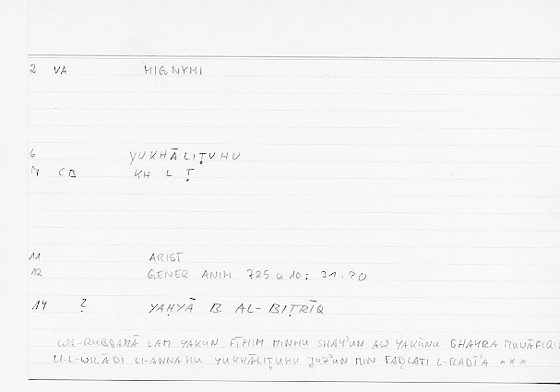 2 VA MIGNYMI
6 YUKHĀLIṬUHU
N CB KH L Ṭ
11 ARIST
12 GENER ANIM 725 a 10; 31.20
14 ? YAḤYĀ B AL-BIṬRĪQ
WA-RUBBAMĀ LAM YAKUN FĪHIM MINHU SHAY'UN AW YAKŪNU GHAYRA MUWĀFIQI
LI-L-WILĀDI LI-ANNAHU YUKHĀLIṬUHU JUZ'UN MIN FAḌLATI L-RADĪ'A ***